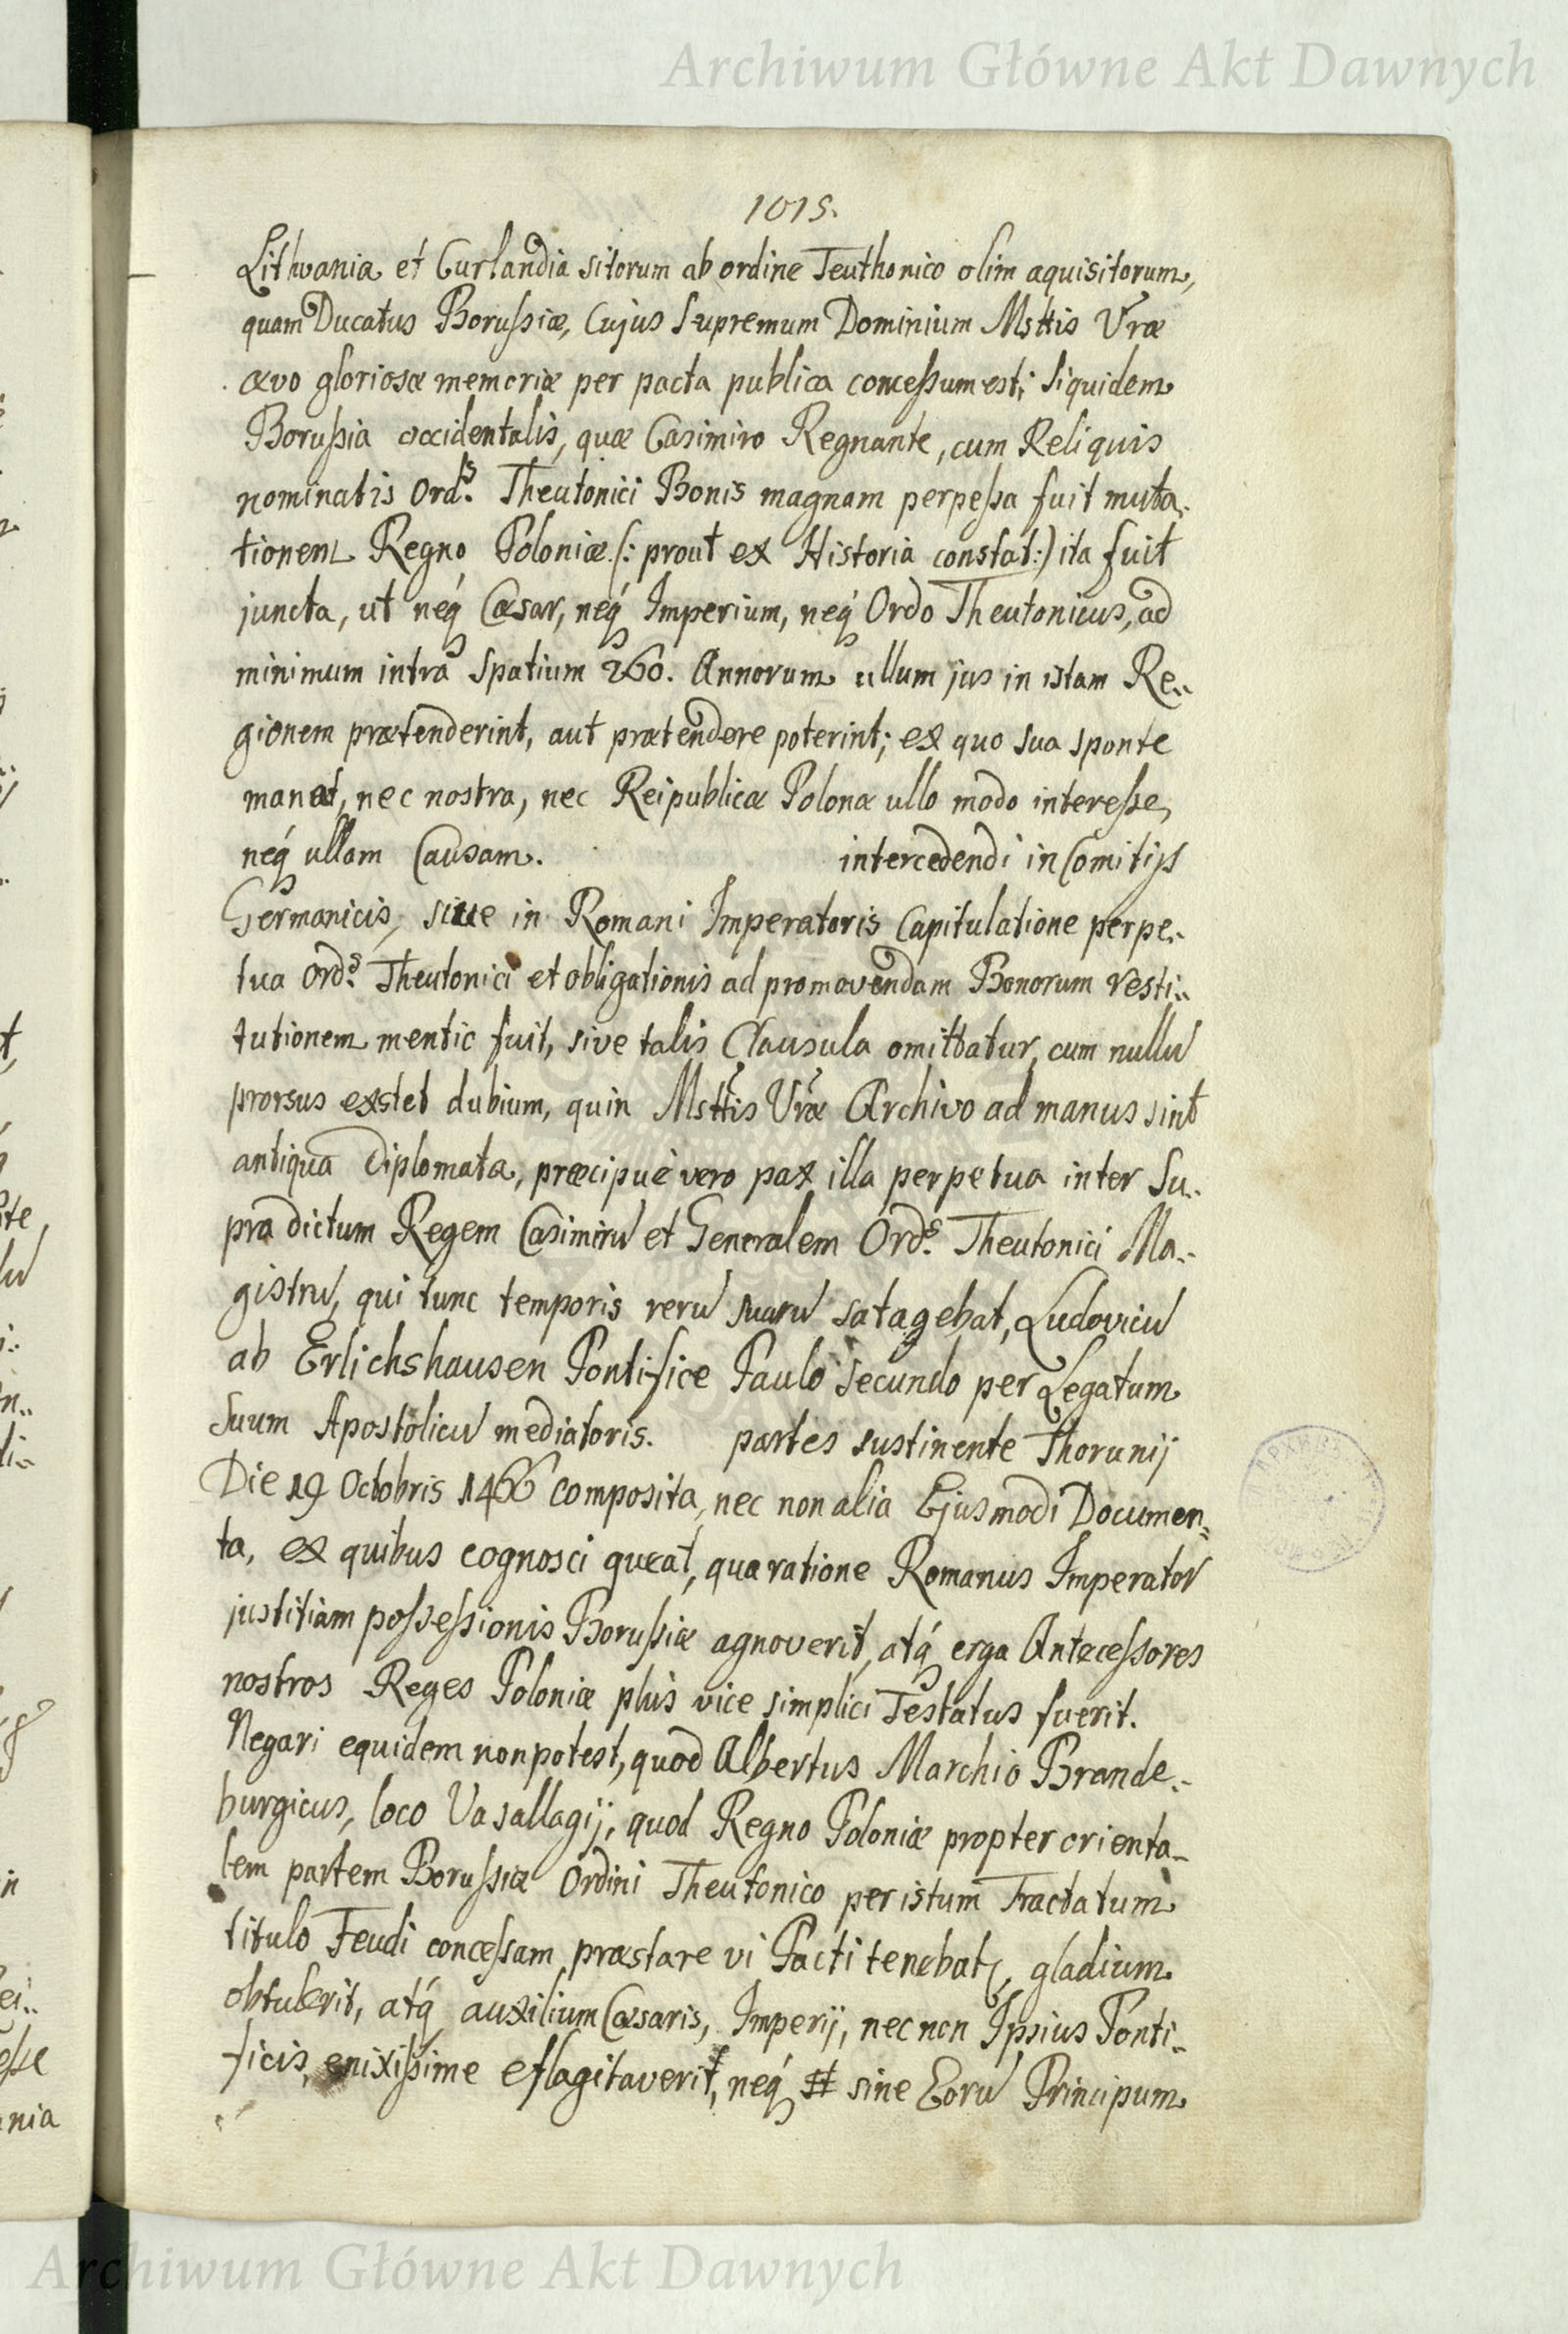 Archiwum Główne Akt Dawnych
1015.
Lithvania et Curlandia sitorum ab ordine Teuthonico olim aquisitorum,
quam Ducatus Borussiæ, Cujus Supremum Dominium Msttis Vræ
ævo gloriosæ memoriæ per pacta publica concessum est; siquidem
Borussia occidentalis, quæ Casimiro Regnante, cum Reliquis
nominatis Ord:is Theutonici Bonis magnam perpessa fuit muta-
tionem Regno Poloniæ (: prout ex Historia constat :) ita fuit
juncta, ut neq Cæsar, neq Imperium, neq Ordo Theutonicus, ad
minimum intra spatium 260. Annorum ullum jus in istam Re-
gionem prætenderint, aut prætendere poterint; ex quo sua sponte
manat, nec nostra, nec Reipublicæ Polonæ ullo modo interesse,
neq ullam Causam. intercedendi in Comitijs
Germanicis, siue in Romani Imperatoris Capitulatione perpe-
tua Ord:s Theutonici et obligationis ad promovendam Bonorum resti-
tutionem mentio fuit, sive talis Clausula omittatur, cum nullu
prorsus exstet dubium, quin Msttis Vræ Archivo ad manus sint
antiqua Diplomata, præcipuè vero pax illa perpetua inter Su-
pra dictum Regem Casimiru et Generalem Ord:s Theutonici Ma-
gistru, qui tunc temporis reru suaru satagebat, Ludovicu
ab Erlichshausen Pontifice Paulo secundo per Legatum
suum Apostolicu mediatoris. partes sustinente Thorunij
Die 19 Octobris 1466 composita, nec non alia Ejusmodi Documen-
ta, ex quibus cognosci queat, qua ratione Romanus Imperator
justitiam possessionis Borussiæ agnoverit, atq erga Antecessores
nostros Reges Poloniæ plùs vice simplici Testatus fuerit.
Negari equidem non potest, quod Albertus Marchio Brande-
burgicus, loco Vasallagij, quod Regno Poloniæ propter orienta-
lem partem Borussiæ Ordini Theutonico per istum Tractatum
titulo Feudi concessam præstare vi Pacti tenebat, gladium
obtulerit, atq auxilium Cæsaris, Imperij, nec non Ipsius Ponti-
ficis, enixissime eflagitaverit, neq sine Eoru Principum
Archiwum Główne Akt Dawnych